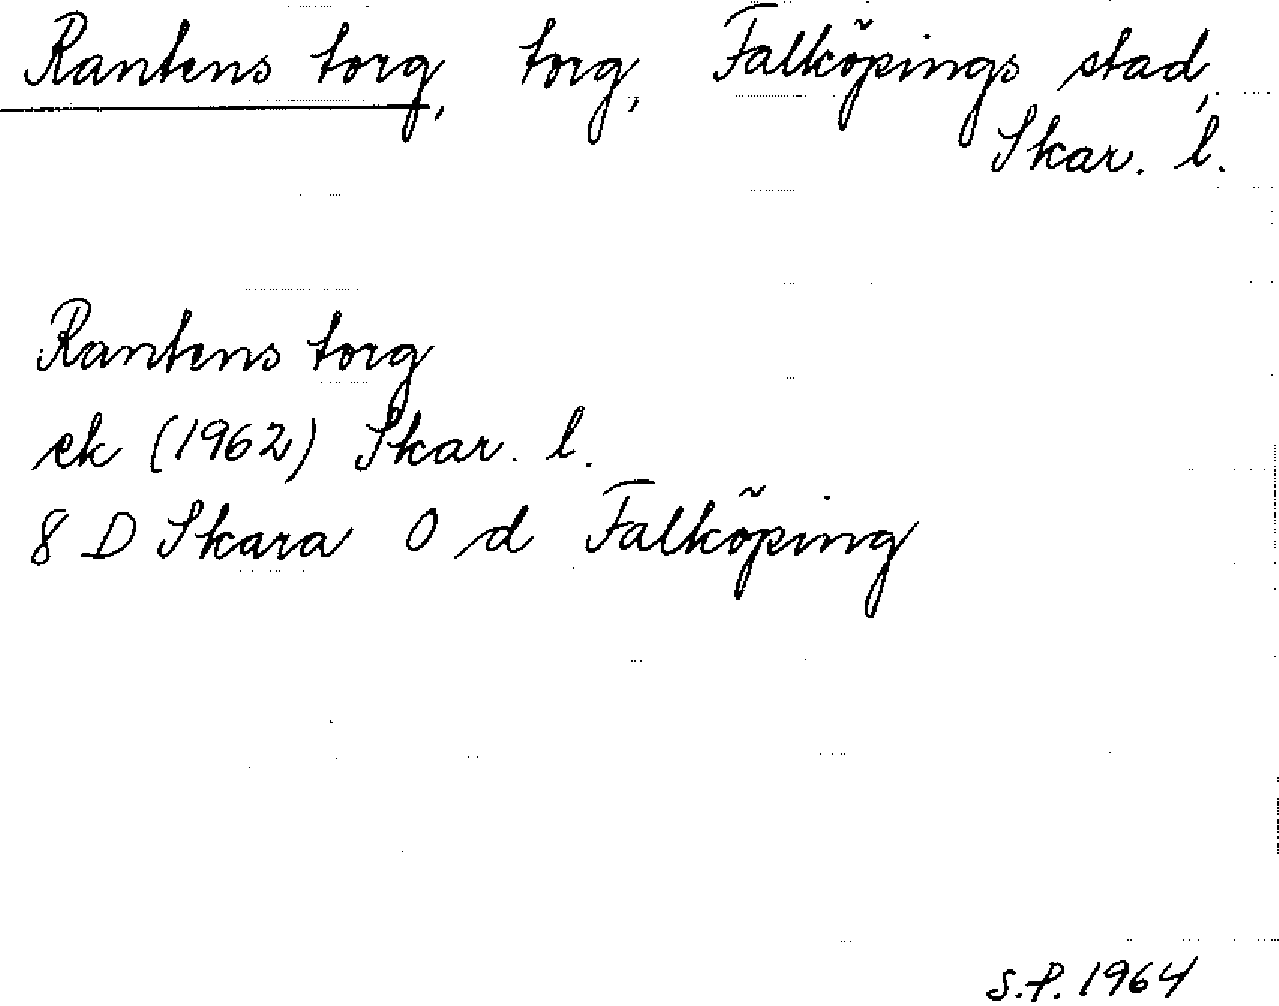 Rantens torg, torg, Falköpings stad,
Skar. l.
Rantens torg
ek (1962) Skar. l.
8 D Skara 0 d Falköping
S.P. 1964